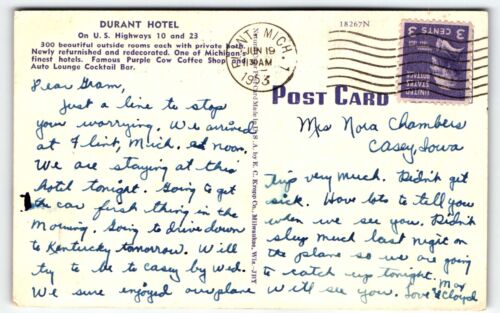 DURANT HOTEL
On U. S. Highways 10 and 23
300 beautiful outside rooms each with private bath.
Newly refurnished and redecorated. One of Michigan's
finest hotels. Famous Purple Cow Coffee Shop and
Auto Lounge Cocktail Bar.
18267N
FLINT, MICH. 1
JUN 19
1130AM
1953
3 CENTS 3
UNITED
STATES
POSTAGE
POST CARD
Made in U.S.A. by E. C. Kropp Co., Milwaukee, Wis.-JHY
Mrs Nora Chambers
Casey, Iowa
Dear Gram,
Just a line to stop
your worrying. We arrived
at Flint, Mich. at noon.
We are staying at this
hotil tonight. Going to get
the car first thing in the
morning. Going to drive down
to Kentucky tomorrow. Will
try to be to Casey by Wed.
We sure enjoyed our plane
trip very much. Didn't get
sick. Have lots to tell you
when we see you. Didn't
sleep much last night on
the plane so we are going
to catch up tonight.
Will see you. Love, Max
& Cloyd